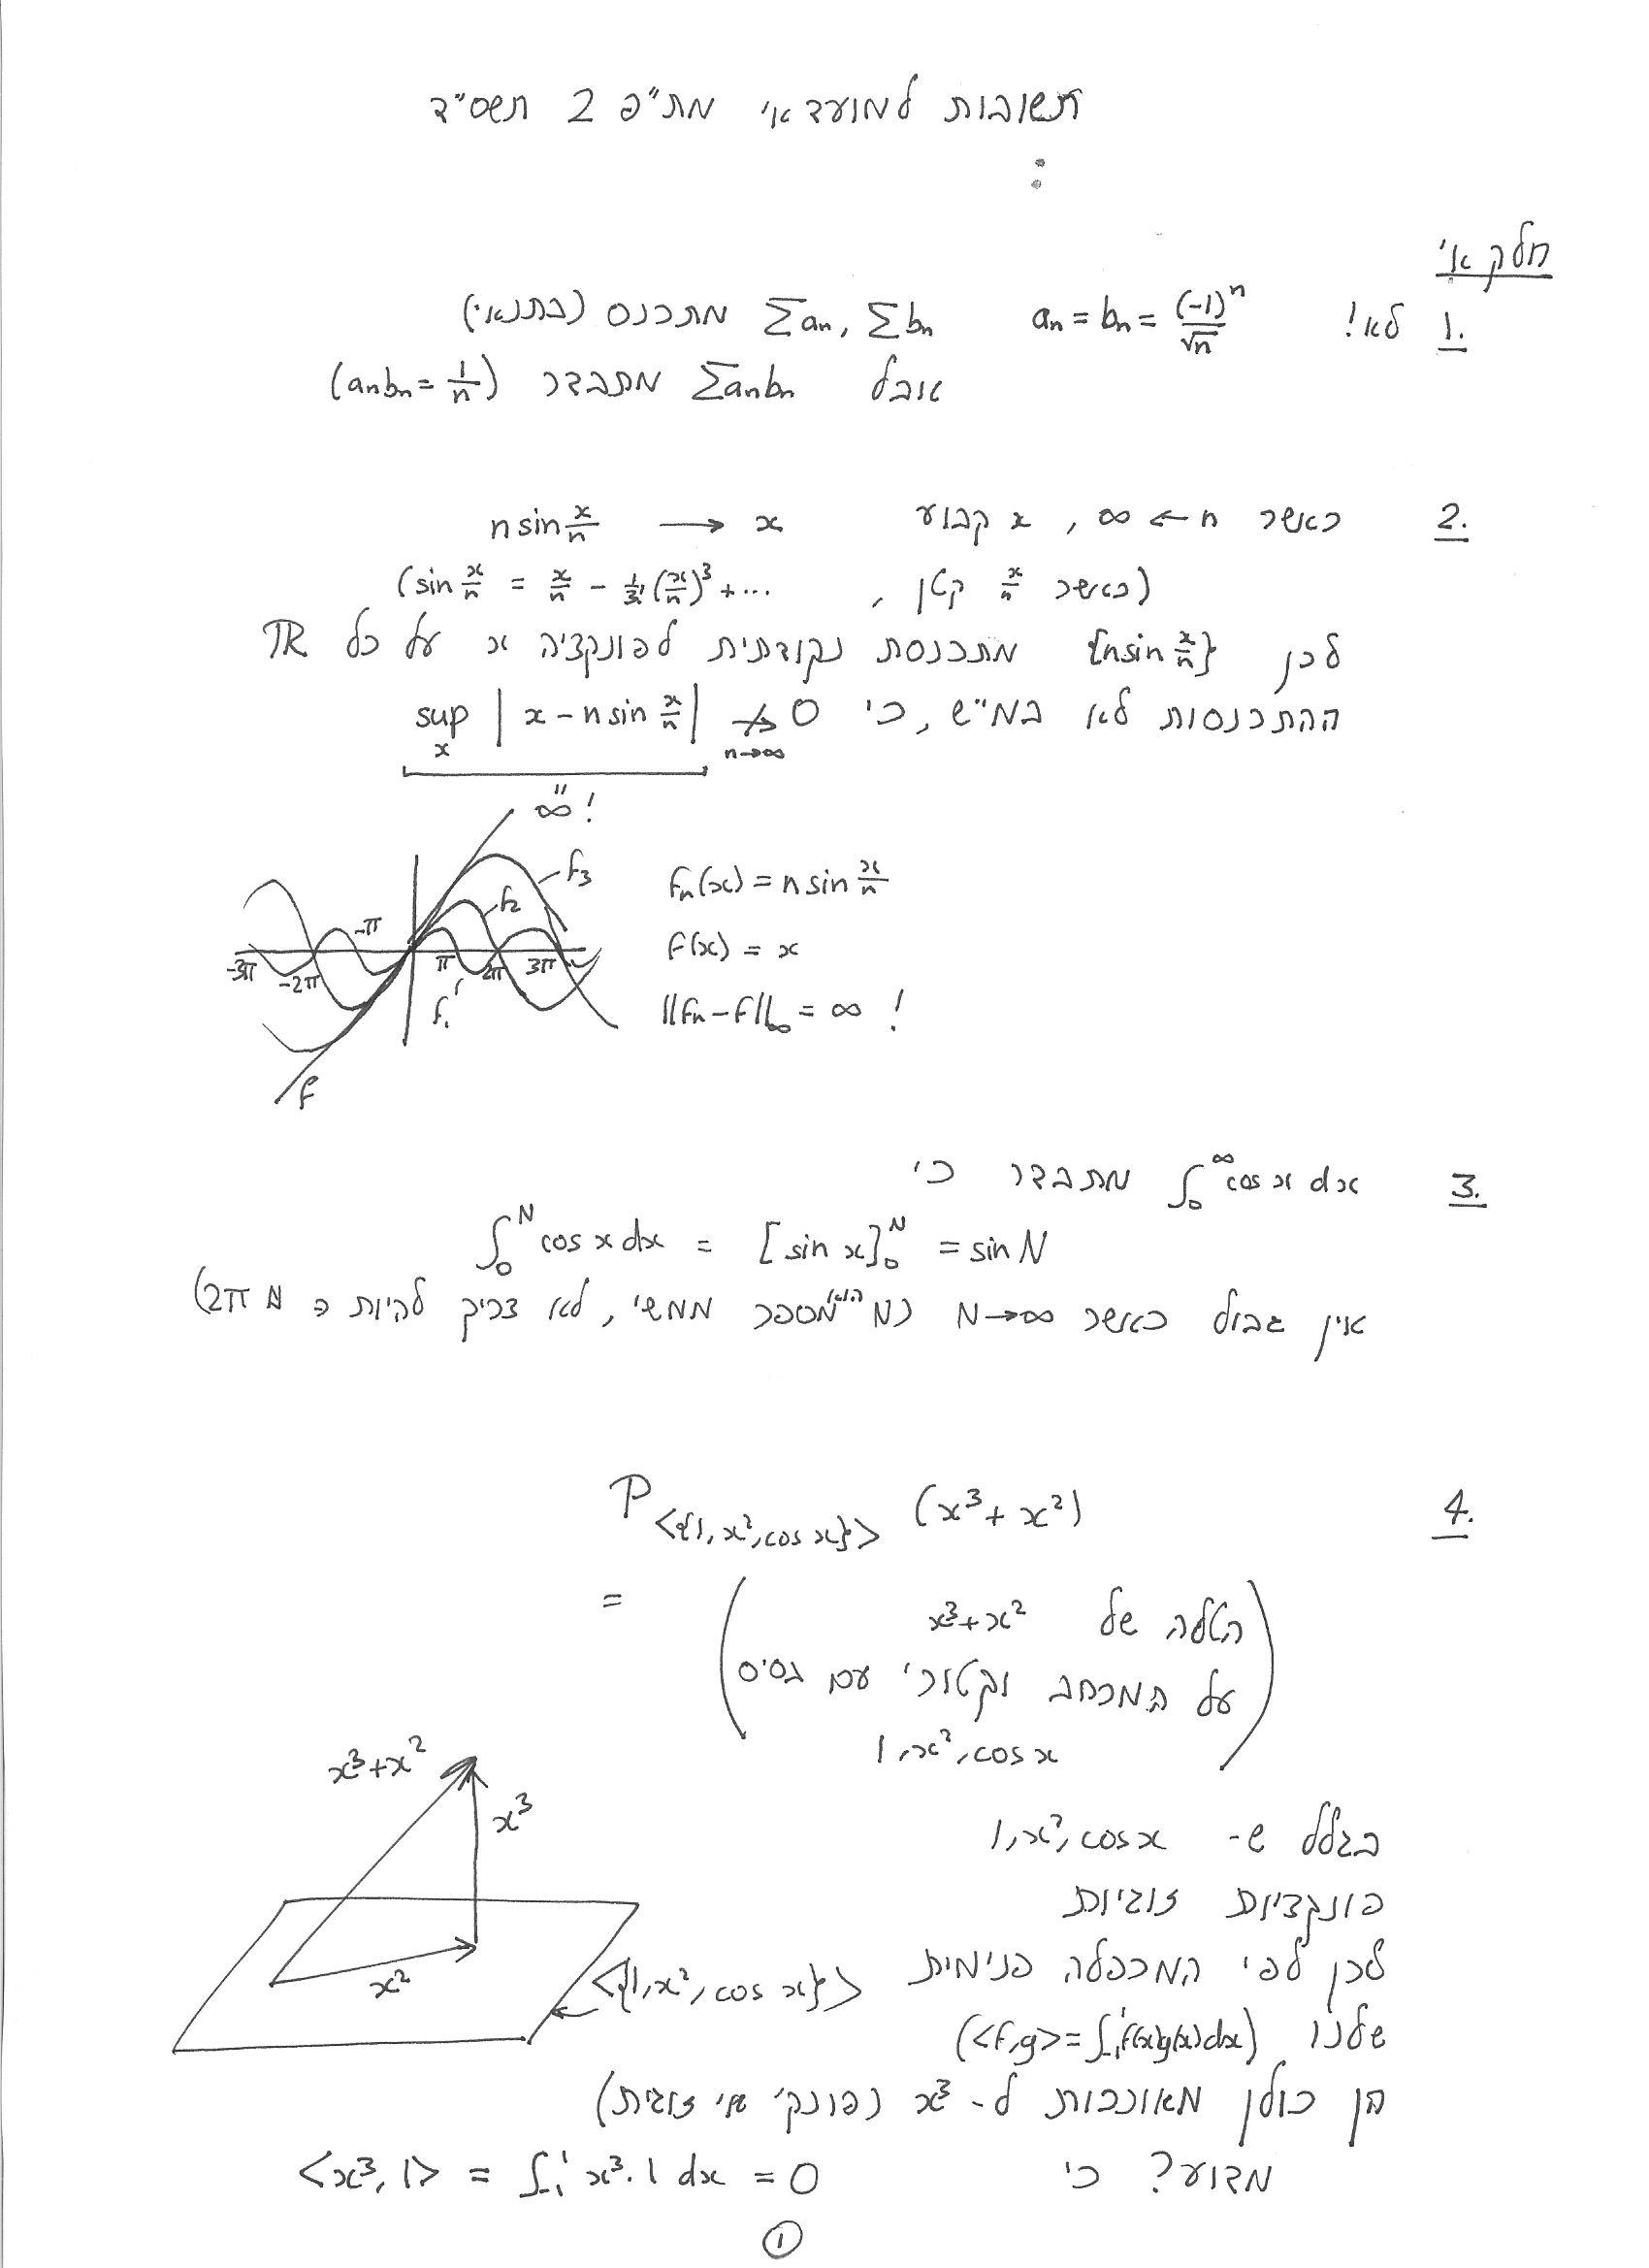 תשובות למועד א' מת"פ 2 תשס"ד
:
חלק א'
1. לא! a_n = b_n = (-1)^n/√n   Σa_n, Σb_n מתכנס (בתנאי)
אבל Σa_n b_n מתבדר (a_n b_n = 1/n)
2. כאשר n → ∞, x קבוע   n sin x/n → x
(כאשר x/n קטן, sin x/n = x/n - 1/3! (x/n)^3 + ...)
לכן {n sin x/n} מתכנסת נקודתית לפונקציה x על כל ℝ
ההתכנסות לא במ"ש, כי sup_x | x - n sin x/n | ↛ 0 n→∞
" ∞ !
f_3
f_n(x) = n sin x/n
f_2
-π
f(x) = x
-3π -2π π 2π 3π
f_1
||f_n - f||_∞ = ∞ !
f
3. ∫_0^∞ cos x dx מתבדר כי
∫_0^N cos x dx = [sin x]_0^N = sin N
אין גבול כאשר N→∞ (N הוא מספר ממשי, לא צריך להיות כ N 2π)
4. P_<{1, x², cos x}> (x³ + x²)
= (הטלה של x³+x²
על המרחב וקטורי עם בסיס
1, x², cos x)
x³+x²
x³
x²
<{1, x², cos x}>
בגלל ש- 1, x², cos x
פונקציות זוגיות
לכן לפי המכפלה פנימית
שלנו (<f,g> = ∫_{-1}^1 f(x)g(x)dx)
הן כולן מאונכות ל- x³ (פונק' אי זוגית)
מדוע? כי <x³, 1> = ∫_{-1}^1 x³·1 dx = 0
1